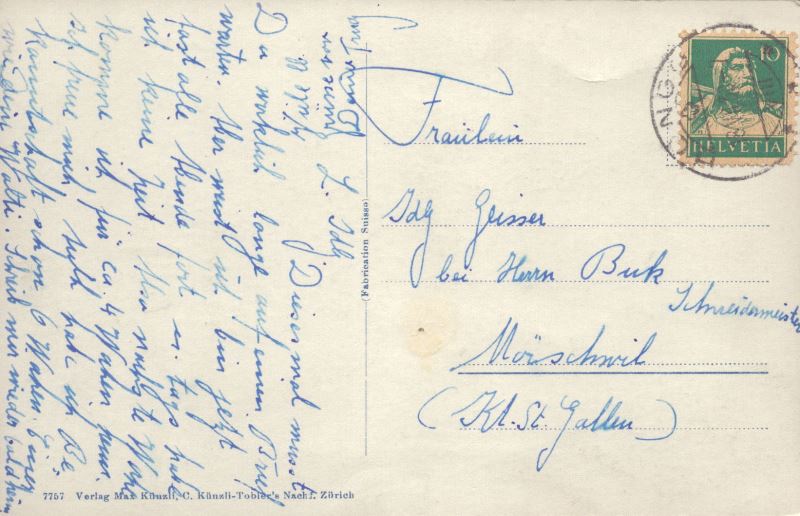 L. Idy
Diesesmal musst
Du wirklich lange auf einen Brief
warten. Aber weist ich bin jetzt
fast alle Abende fort u. tags habe
ich keine Zeit. Also nächste Woche
komme ich für ca. 4 Wochen heim
ich freue mich, selbst habe ich Be
kanntschaft schon 6 Wochen. Euer
wie Deine Walti. Schreib mir wieder bald heim
Fräulein
Idy Geisser
bei Herrn Buk
Schneidermeister
Mörschwil
(Kt. St. Gallen)
10
HELVETIA
(Fabrication Suisse)
7757 Verlag Max Künzli, C. Künzli-Tobler's Nachf. Zürich